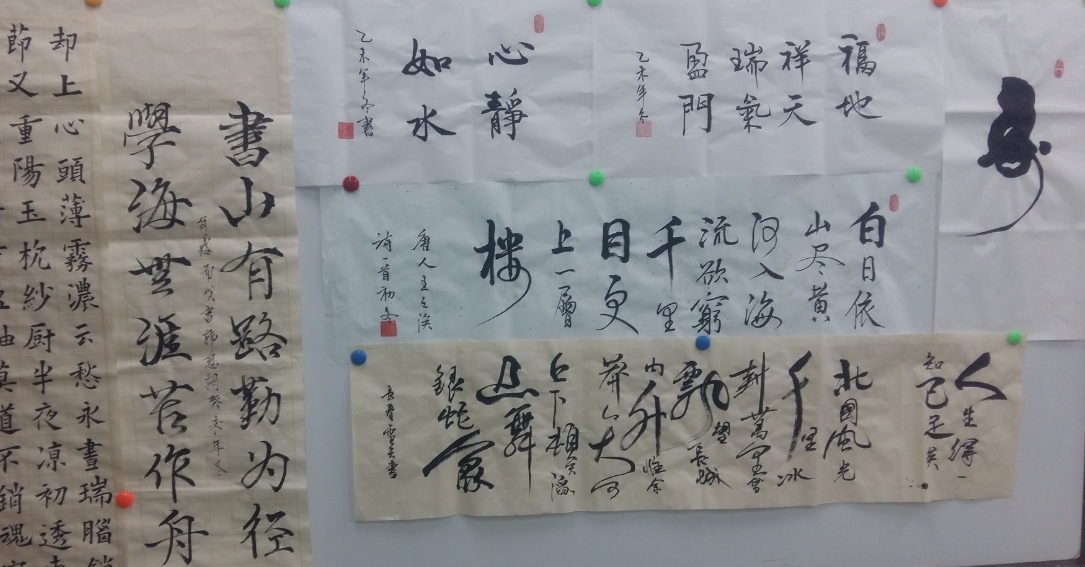 却上心頭薄霧濃云愁永晝瑞腦銷
節又重陽玉枕紗厨半夜凉初透
莫道不銷魂
書山有路勤为径
學海無涯苦作舟
福地
祥天
瑞氣
盈門
乙未年冬
心靜
如水
乙未年冬書
白日依
山尽黄
河入海
流欲窮
千里
目更
上一層
楼
唐人王之渙
詩一首初冬
人生得一
知己足矣
北國風光
千里冰
封萬里雪
飄望長城
内外惟余
莽莽大河
上下頓失滔
滔山舞
銀蛇